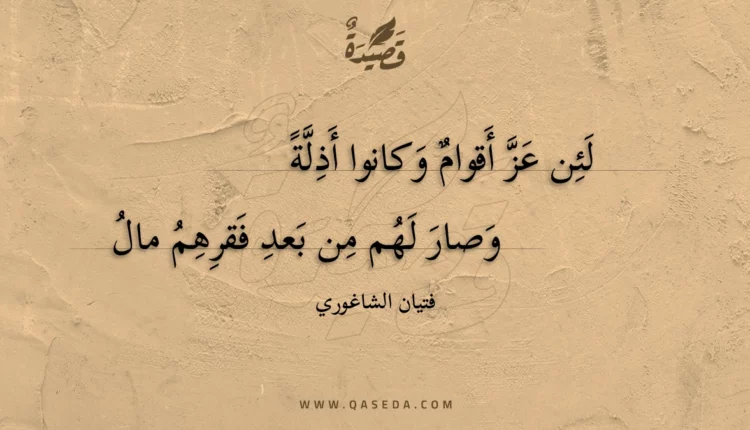 قَصِيدَةٌ
لَئِن عَزَّ أَقوامٌ وَكانوا أَذِلَّةً
وَصارَ لَهُم مِن بَعدِ فَقرِهِمُ مالُ
فتيان الشاغوري
WWW.QASEDA.COM